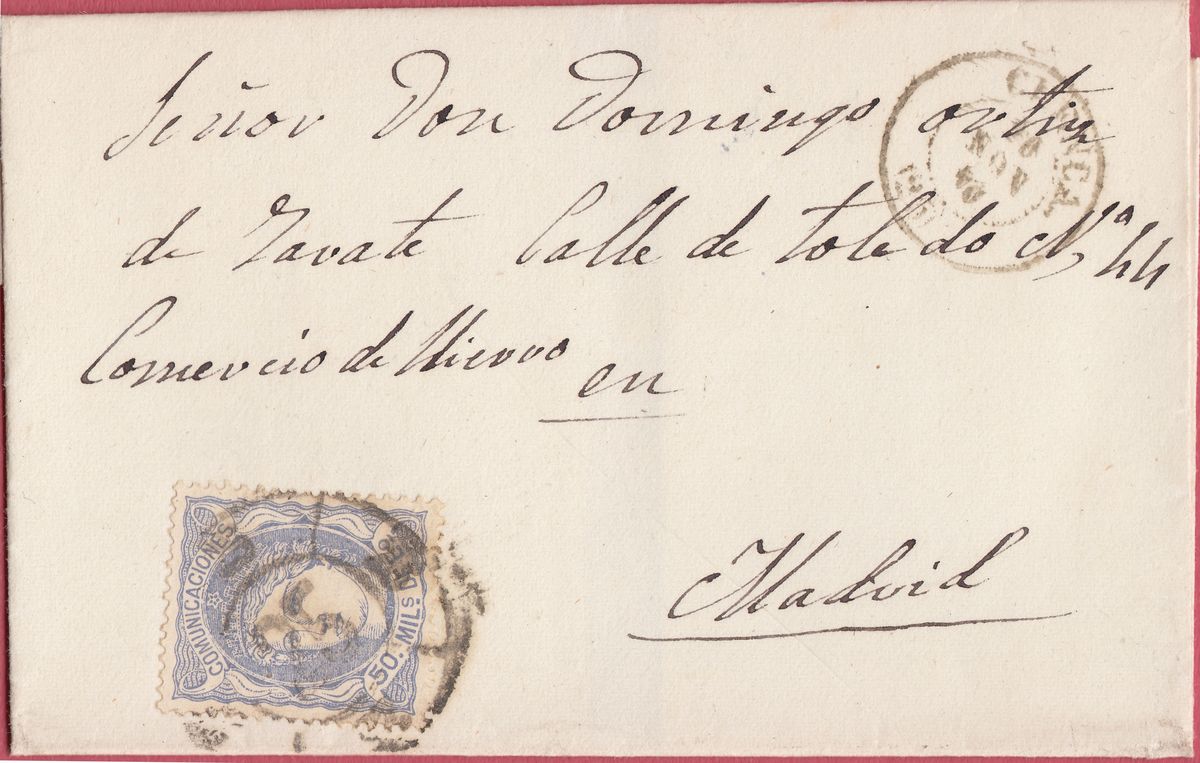 Señor Don Domingo ortiz
de Zarate Calle de toledo Nº 44
Comercio de Hierro
en
Madrid
CUENCA
NOV
COMUNICACIONES
50. MILS. DE